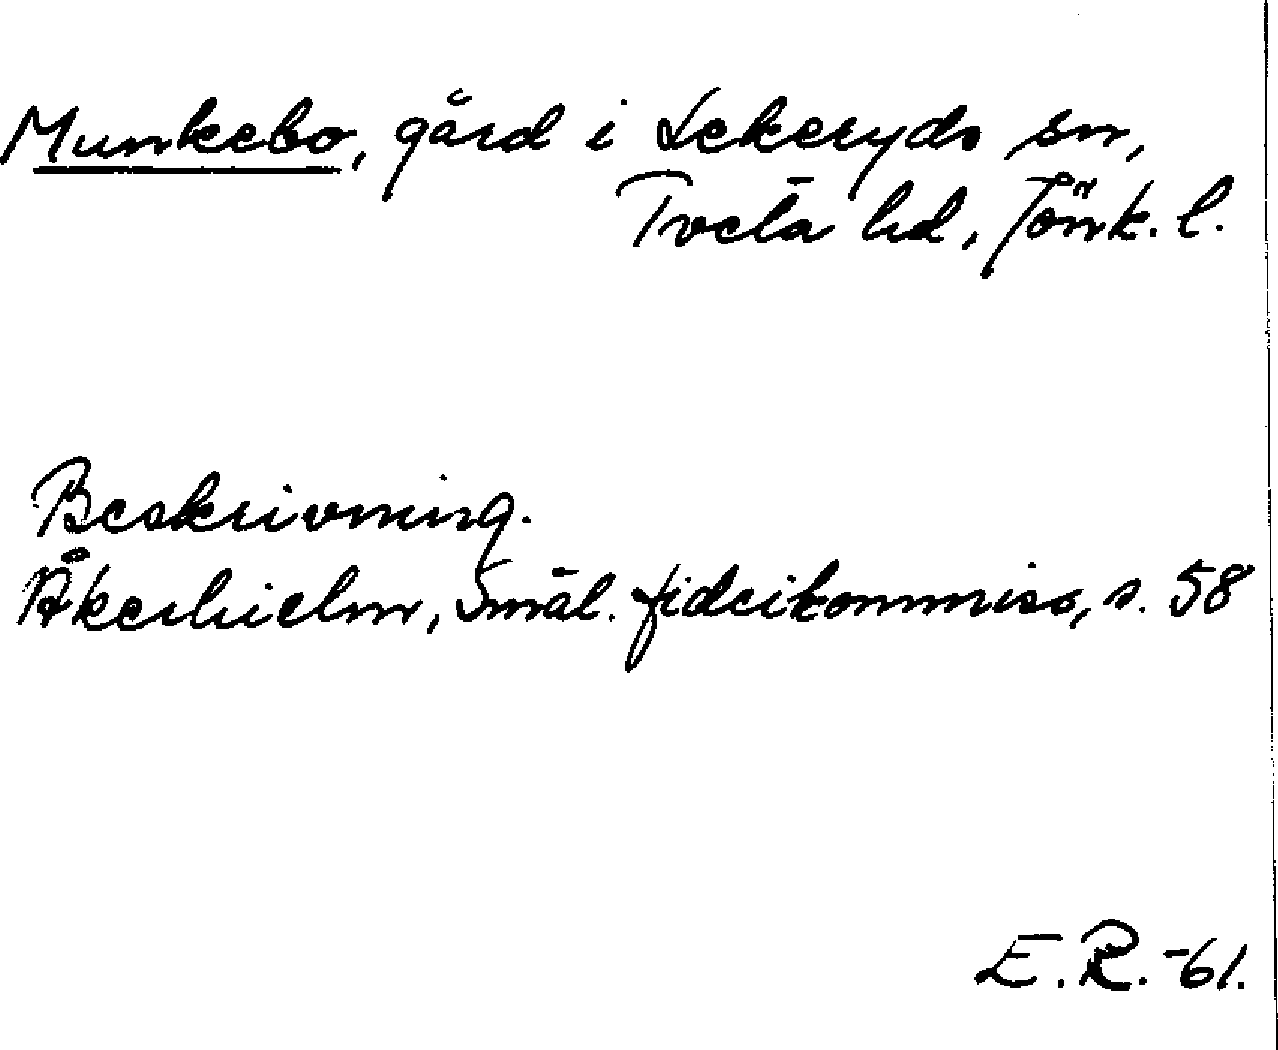 Munkebo, gård i Lekeryds sn,
Tveta hd, Jönk. l.
Beskrivning.
Åkerhielm, Smål. fideikommiss, s. 58
E.R. -61.